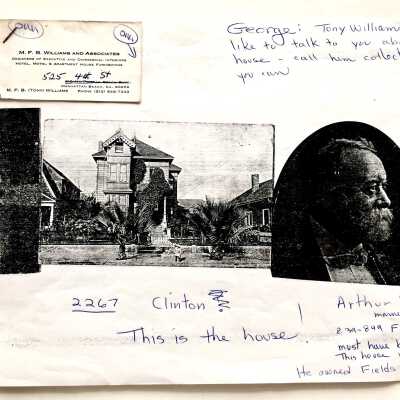 our
our
M. F. B. WILLIAMS AND ASSOCIATES
DESIGNERS OF EXECUTIVE AND COMMERCIAL INTERIORS
HOTEL, MOTEL & APARTMENT HOUSE FURNISHINGS
525 4th St
MANHATTAN BEACH, CAL 90266
M. F. B. (TONY) WILLIAMS PHONE (213)
George: Tony Williams
like to talk to you abo
house - call him collect
you can
2267 Clinton
This is the house.
Arthur
839-849 F
must have b
This house
He owned Fields